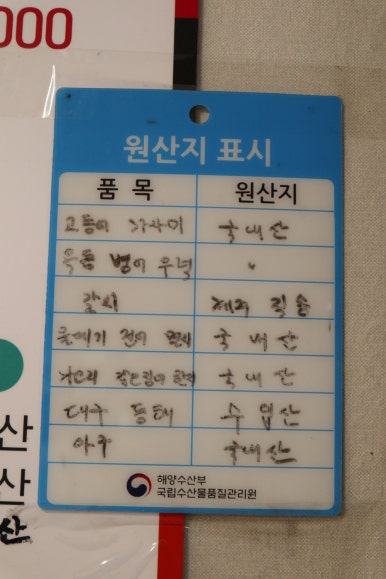 000
원산지 표시
품 목 원산지
고등어 가자미 국내산
옥돔 병어 우럭 "
갈치 제주 직송
물메기 전어 국내산
가오리 갑오징어 국내산
대구 동태 수입산
아구 국내산
해양수산부
국립수산물품질관리원
산
산
산